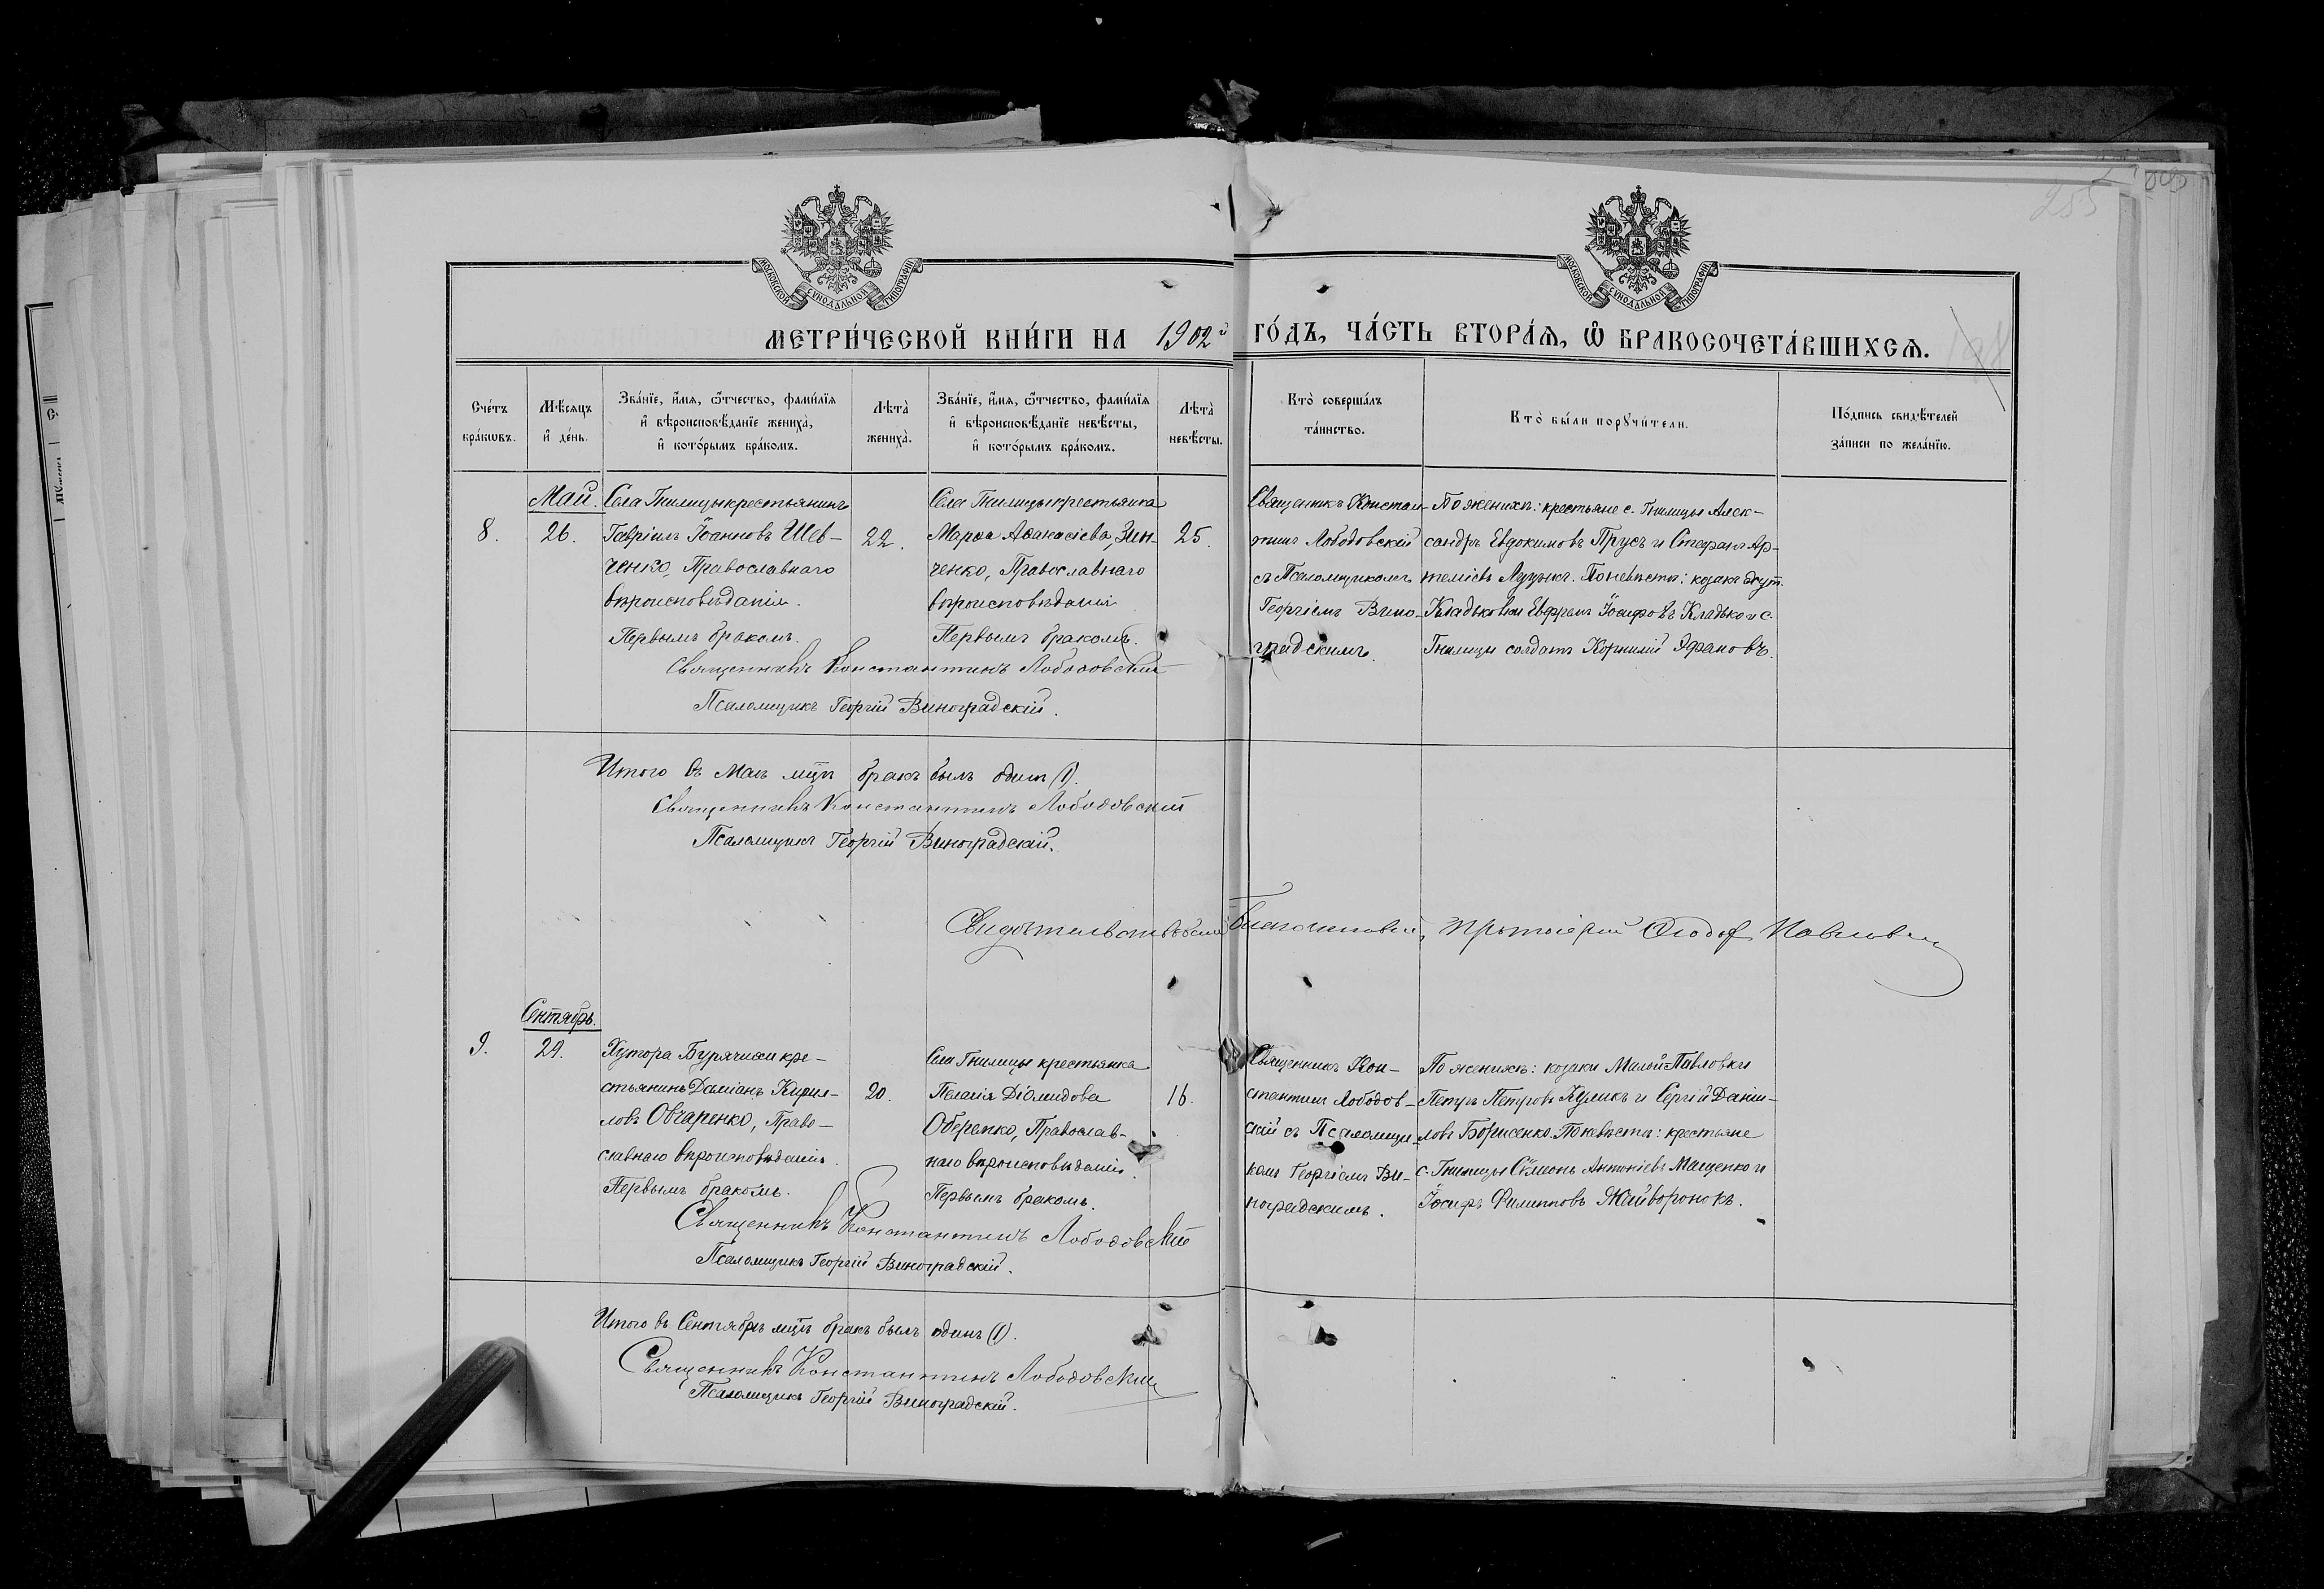 255
МОСКОВСКОЙ СѴНОДАЛЬНОЙ ТИПОГРАФІИ
МОСКОВСКОЙ СѴНОДАЛЬНОЙ ТИПОГРАФІИ
МЕТРИ́ЧЕСКОЙ КНИ́ГИ НА 1902й ГО́ДЪ, ЧА́СТЬ ВТОРА́Ѧ, Ѡ҆ БРАКОСОЧЕТА́ВШИХСѦ.
Сче́тъ
бра́кѡвъ.
Мѣ́сяцъ
и҆ де́нь.
Зва́нїе, и҆́мѧ, ѻ҆́тчество, фами́лїѧ
и҆ вѣроисповѣ́данїе жениха̀,
и҆ кото́рымъ бра́комъ.
Лѣта̀
жениха̀.
Зва́нїе, и҆́мѧ, ѻ҆́тчество, фами́лїѧ
и҆ вѣроисповѣ́данїе невѣ́сты,
и҆ кото́рымъ бра́комъ.
Лѣта̀
невѣ́сты.
Кто̀ соверша́лъ
та́инство.
Кто̀ бы́ли порꙋчи́тели.
По́дпись свидѣ́телей
за́писи по жела́нїю.
8.
Май.
26.
Села Гнилицы крестьянинъ
Гавріилъ Іоанновъ Шев-
ченко, Православнаго
вѣроисповѣданія.
Первымъ бракомъ.
22.
Села Гнилицы крестьянка
Марѳа Аѳанасіева Зин-
ченко, Православнаго
вѣроисповѣданія
Первымъ бракомъ.
25.
Священникъ Констан-
тинъ Лободовскій
съ Псаломщикомъ
Георгіемъ Вино-
градскимъ.
По женихѣ: крестьяне с. Гнилицы Алек-
сандръ Евдокимовъ Прусъ и Стефанъ Ар-
теміевъ Луцыкъ. По невѣстѣ: козакъ хут.
Кладьковки Ефремъ Іосифовъ Кладько и с.
Гнилицы солдатъ Корнилій
Священникъ Константинъ Лободовскій
Псаломщикъ Георгій Виноградскій.
Итого въ Маѣ мцѣ бракъ былъ одинъ (1).
Священникъ Константинъ Лободовскій
Псаломщикъ Георгій Виноградскій.
Свидѣтельствовалъ Благочинный, Протоіерей
9.
Сентябрь.
29.
Хутора Бурячихи кре-
стьянинъ Даміанъ Кирил-
ловъ Овчаренко, Право-
славнаго вѣроисповѣданія.
Первымъ бракомъ.
20.
Села Гнилицы крестьянка
Пелагія Діомидова
Оберемко, Православ-
наго вѣроисповѣданія.
Первымъ бракомъ.
16.
Священникъ Кон-
стантинъ Лободов-
скій съ Псаломщи-
комъ Георгіемъ Ви-
ноградскимъ.
По женихѣ: козаки Малой Павловки
Петръ Петровъ Куликъ и Сергій Даніи-
ловъ Борисенко. По невѣстѣ: крестьяне
с. Гнилицы Сѵмеонъ Антоніевъ Мащенко и
Іосифъ Филипповъ Жайворонокъ.
Священникъ Константинъ Лободовскій
Псаломщикъ Георгій Виноградскій.
Итого въ Сентябрѣ мцѣ бракъ былъ одинъ (1).
Священникъ Константинъ Лободовскій
Псаломщикъ Георгій Виноградскій.